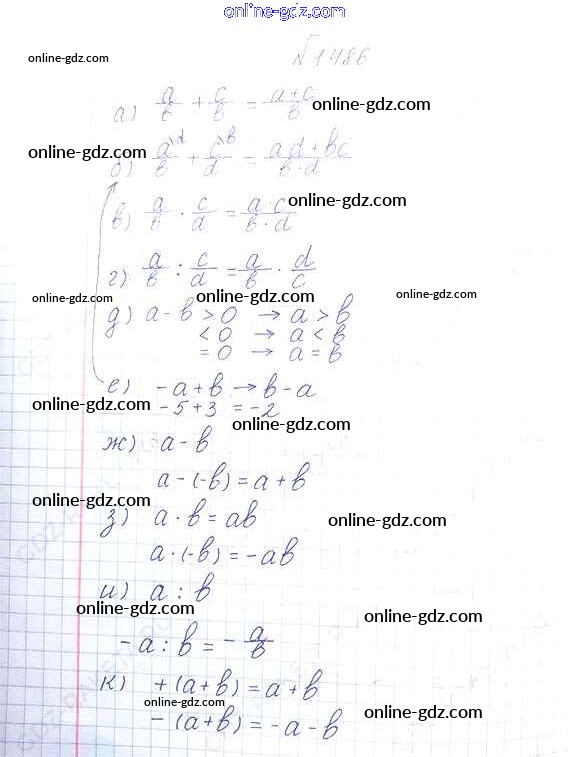 online-gdz.com
№1486
online-gdz.com
а) a/b + c/b = a+c/b online-gdz.com
online-gdz.com
б) a\d/b + c\b/d = ad+bc/b·d
online-gdz.com
в) a/b · c/d = a·c/b·d
г) a/b : c/d = a/b · d/c
online-gdz.com online-gdz.com online-gdz.com
д) a-b > 0 → a > b
< 0 → a < b
= 0 → a = b
е) -a+b → b-a
online-gdz.com -5+3 = -2
online-gdz.com
ж) a-b
a-(-b) = a+b
online-gdz.com
з) a·b = ab online-gdz.com
a·(-b) = -ab
и) a : b
online-gdz.com online-gdz.com
-a : b = -a/b
к) +(a+b) = a+b
online-gdz.com online-gdz.com
-(a+b) = -a-b